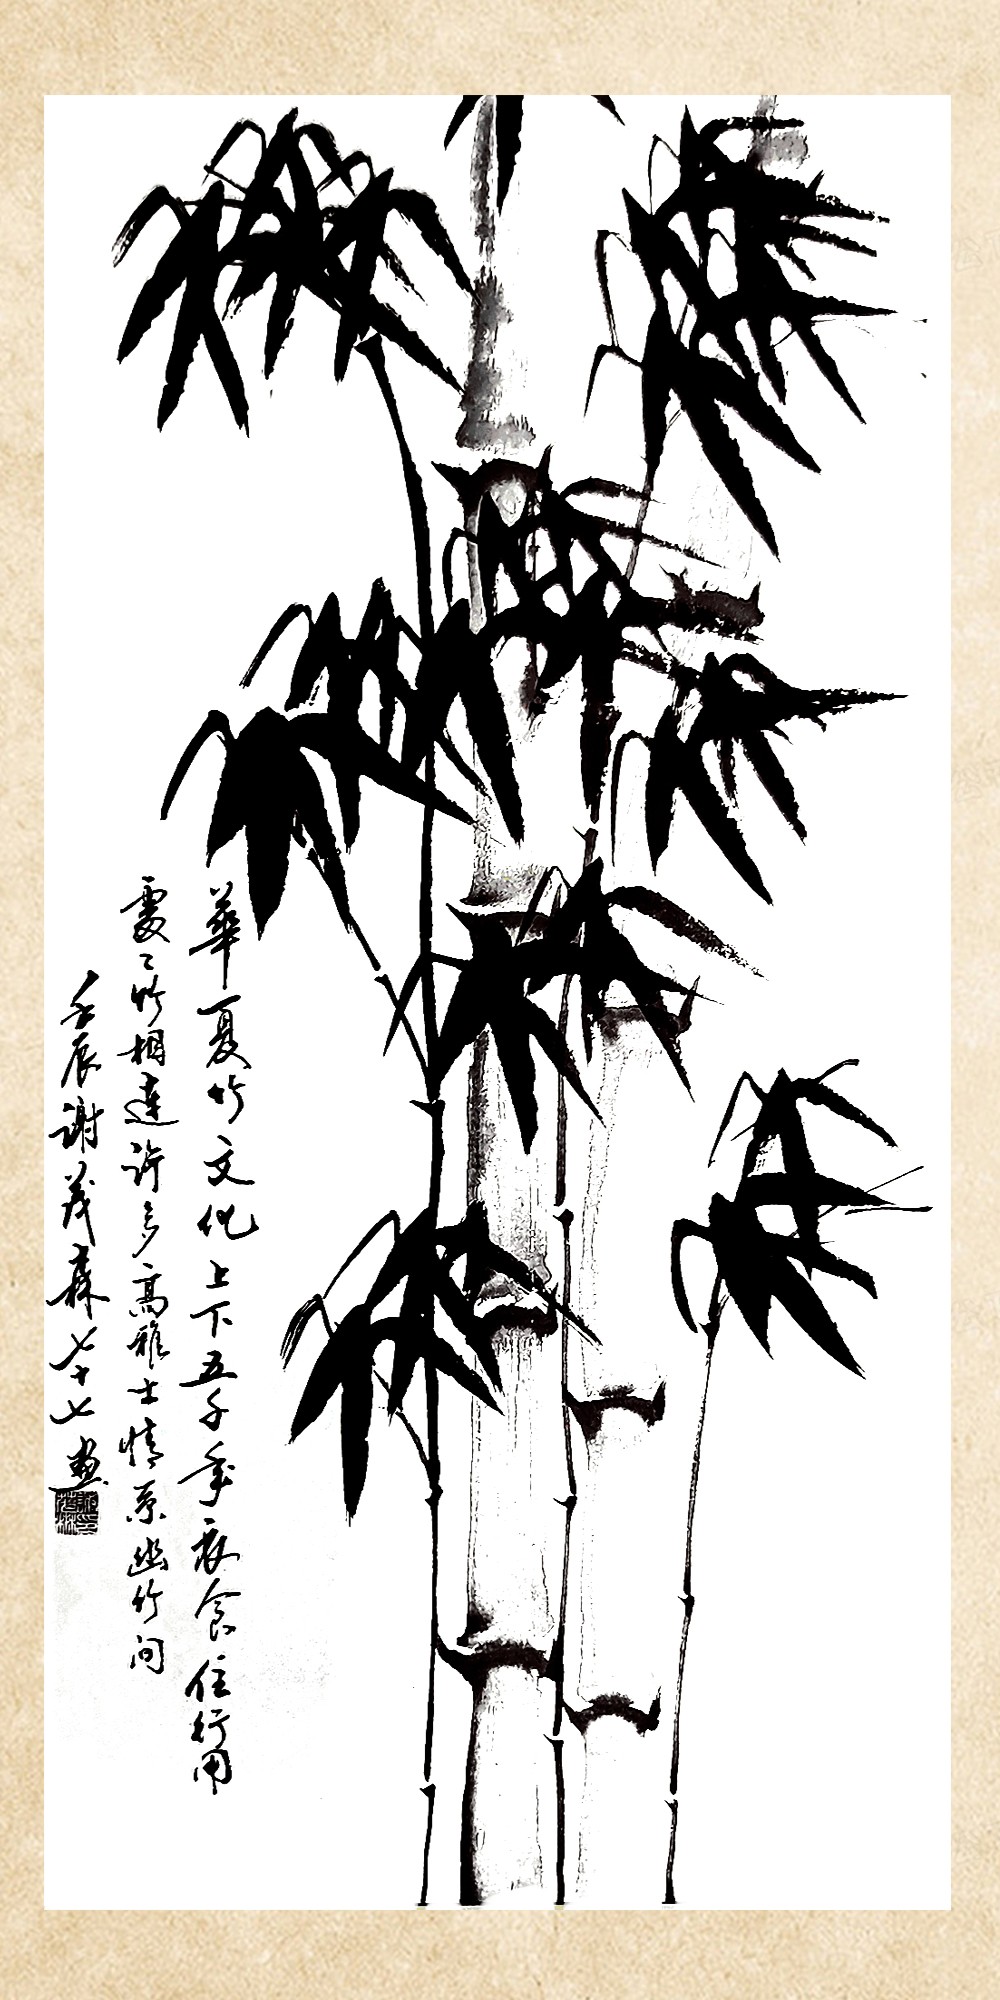 華夏竹文化上下五千年衣食住行用
處〻竹相連許多高雅士情系幽竹间
壬辰谢茂森七十七画